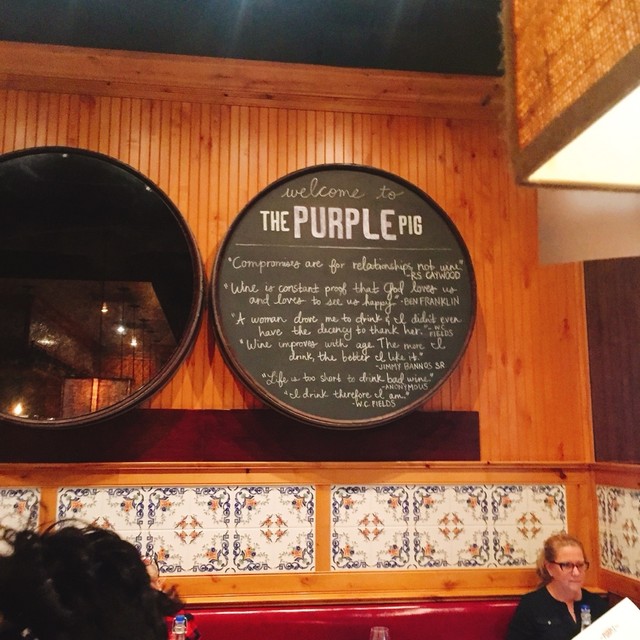 welcome to
THE PURPLE PIG
"Compromises are for relationships not wine"
-RS CAYWOOD
"Wine is constant proof that God loves us
and loves to see us happy" -BEN FRANKLIN
"A woman drove me to drink & I didn't even
have the decency to thank her." -W.C.
FIELDS
"Wine improves with age The more I
drink, the better I like it."
-JIMMY BANNOS SR
"Life is too short to drink bad wine."
-ANONYMOUS
"I drink therefore I am."
-W.C. FIELDS